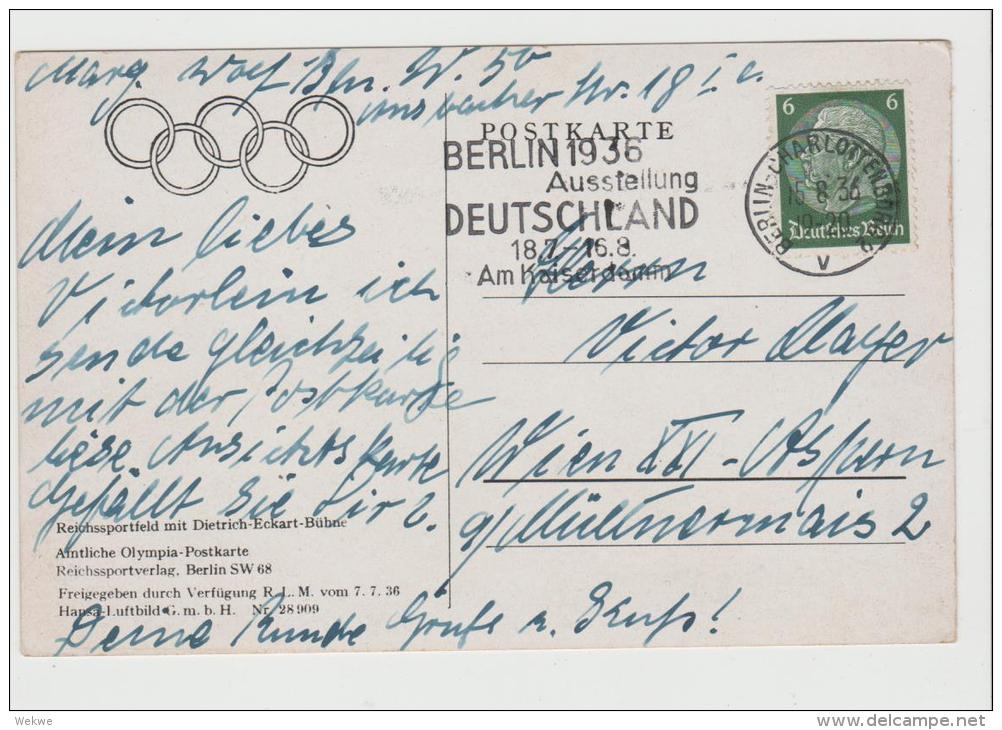 Marg. Wolf Bln. W. 50
Ansbacher Str. 18 I c.
POSTKARTE
BERLIN 1936
Ausstellung
DEUTSCHLAND
18.7.-16.8.
Am Kaiserdamm
6 6
BERLIN-CHARLOTTENBURG
8.36
19-20
V
Deutsches Reich
Mein liebes
Victorlein ich
sende gleichzeitig
mit der Postkarte
Ansichtskarte
Gefällt sie Dir
Herrn
Victor Mayer
Wien XXI - Aspern
2
Reichssportfeld mit Dietrich-Eckart-Bühne
Amtliche Olympia-Postkarte
Reichssportverlag, Berlin SW 68
Freigegeben durch Verfügung R. L. M. vom 7. 7. 36
Hansa-Luftbild G. m. b. H. Nr. 28 909
Deine Grüße u. Kuß!
Wekwe
delcampe.net